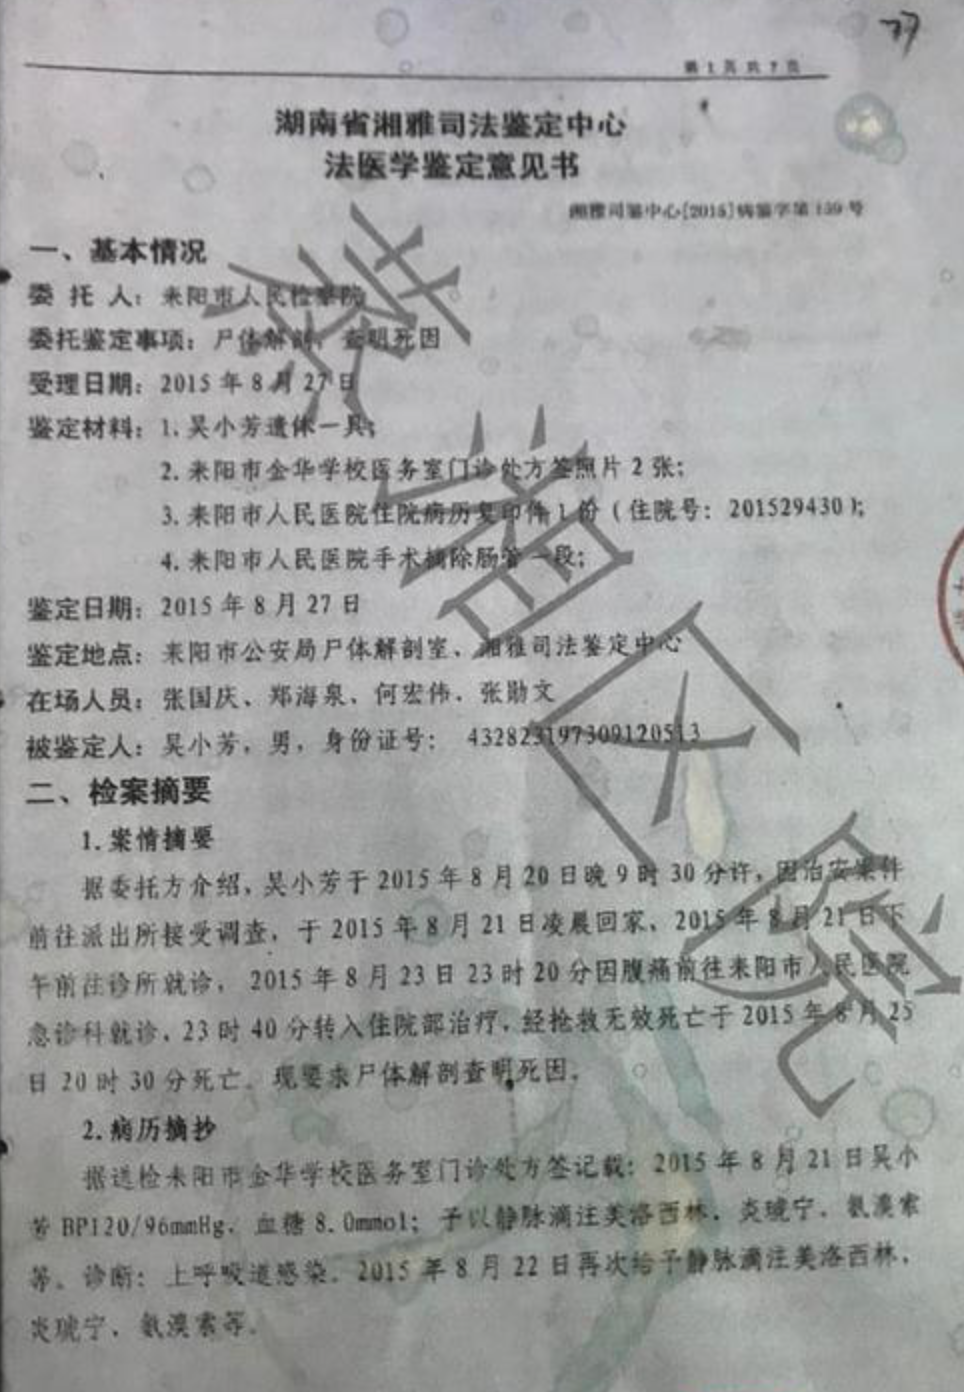 77
第1页共7页
湖南省湘雅司法鉴定中心
法医学鉴定意见书
湘雅司鉴中心[2015]病鉴字第159号
一、基本情况
委 托 人：耒阳市人民检察院
委托鉴定事项：尸体解剖，查明死因
受理日期：2015年8月27日
鉴定材料：1.吴小芳遗体一具；
2.耒阳市金华学校医务室门诊处方签照片2张；
3.耒阳市人民医院住院病历复印件1份（住院号：201529430）；
4.耒阳市人民医院手术摘除肠管一段；
鉴定日期：2015年8月27日
鉴定地点：耒阳市公安局尸体解剖室、湘雅司法鉴定中心
在场人员：张国庆、郑海泉、何宏伟、张勋文
被鉴定人：吴小芳，男，身份证号：432823197309120513
二、检案摘要
1.案情摘要
据委托方介绍，吴小芳于2015年8月20日晚9时30分许，因治安案件
前往派出所接受调查，于2015年8月21日凌晨回家，2015年8月21日下
午前往诊所就诊，2015年8月23日23时20分因腹痛前往耒阳市人民医院
急诊科就诊，23时40分转入住院部治疗，经抢救无效死亡于2015年8月25
日20时30分死亡。现要求尸体解剖查明死因。
2.病历摘抄
据送检耒阳市金华学校医务室门诊处方签记载：2015年8月21日吴小
芳BP120/96mmHg，血糖8.0mmol；予以静脉滴注美洛西林，炎琥宁，氨溴索
等。诊断：上呼吸道感染。2015年8月22日再次给予静脉滴注美洛西林，
炎琥宁，氨溴索等。
蒸湘区院